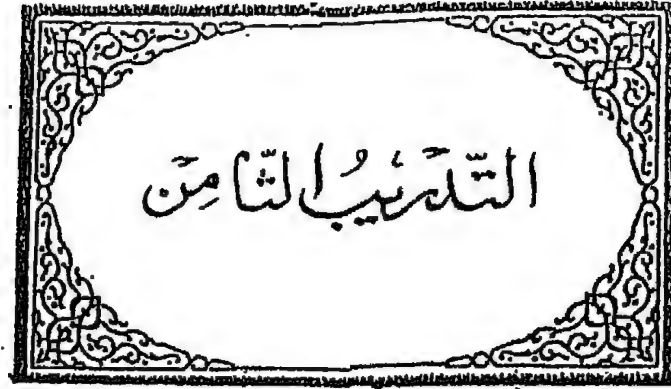 التَّدريبُ الثَّامِن